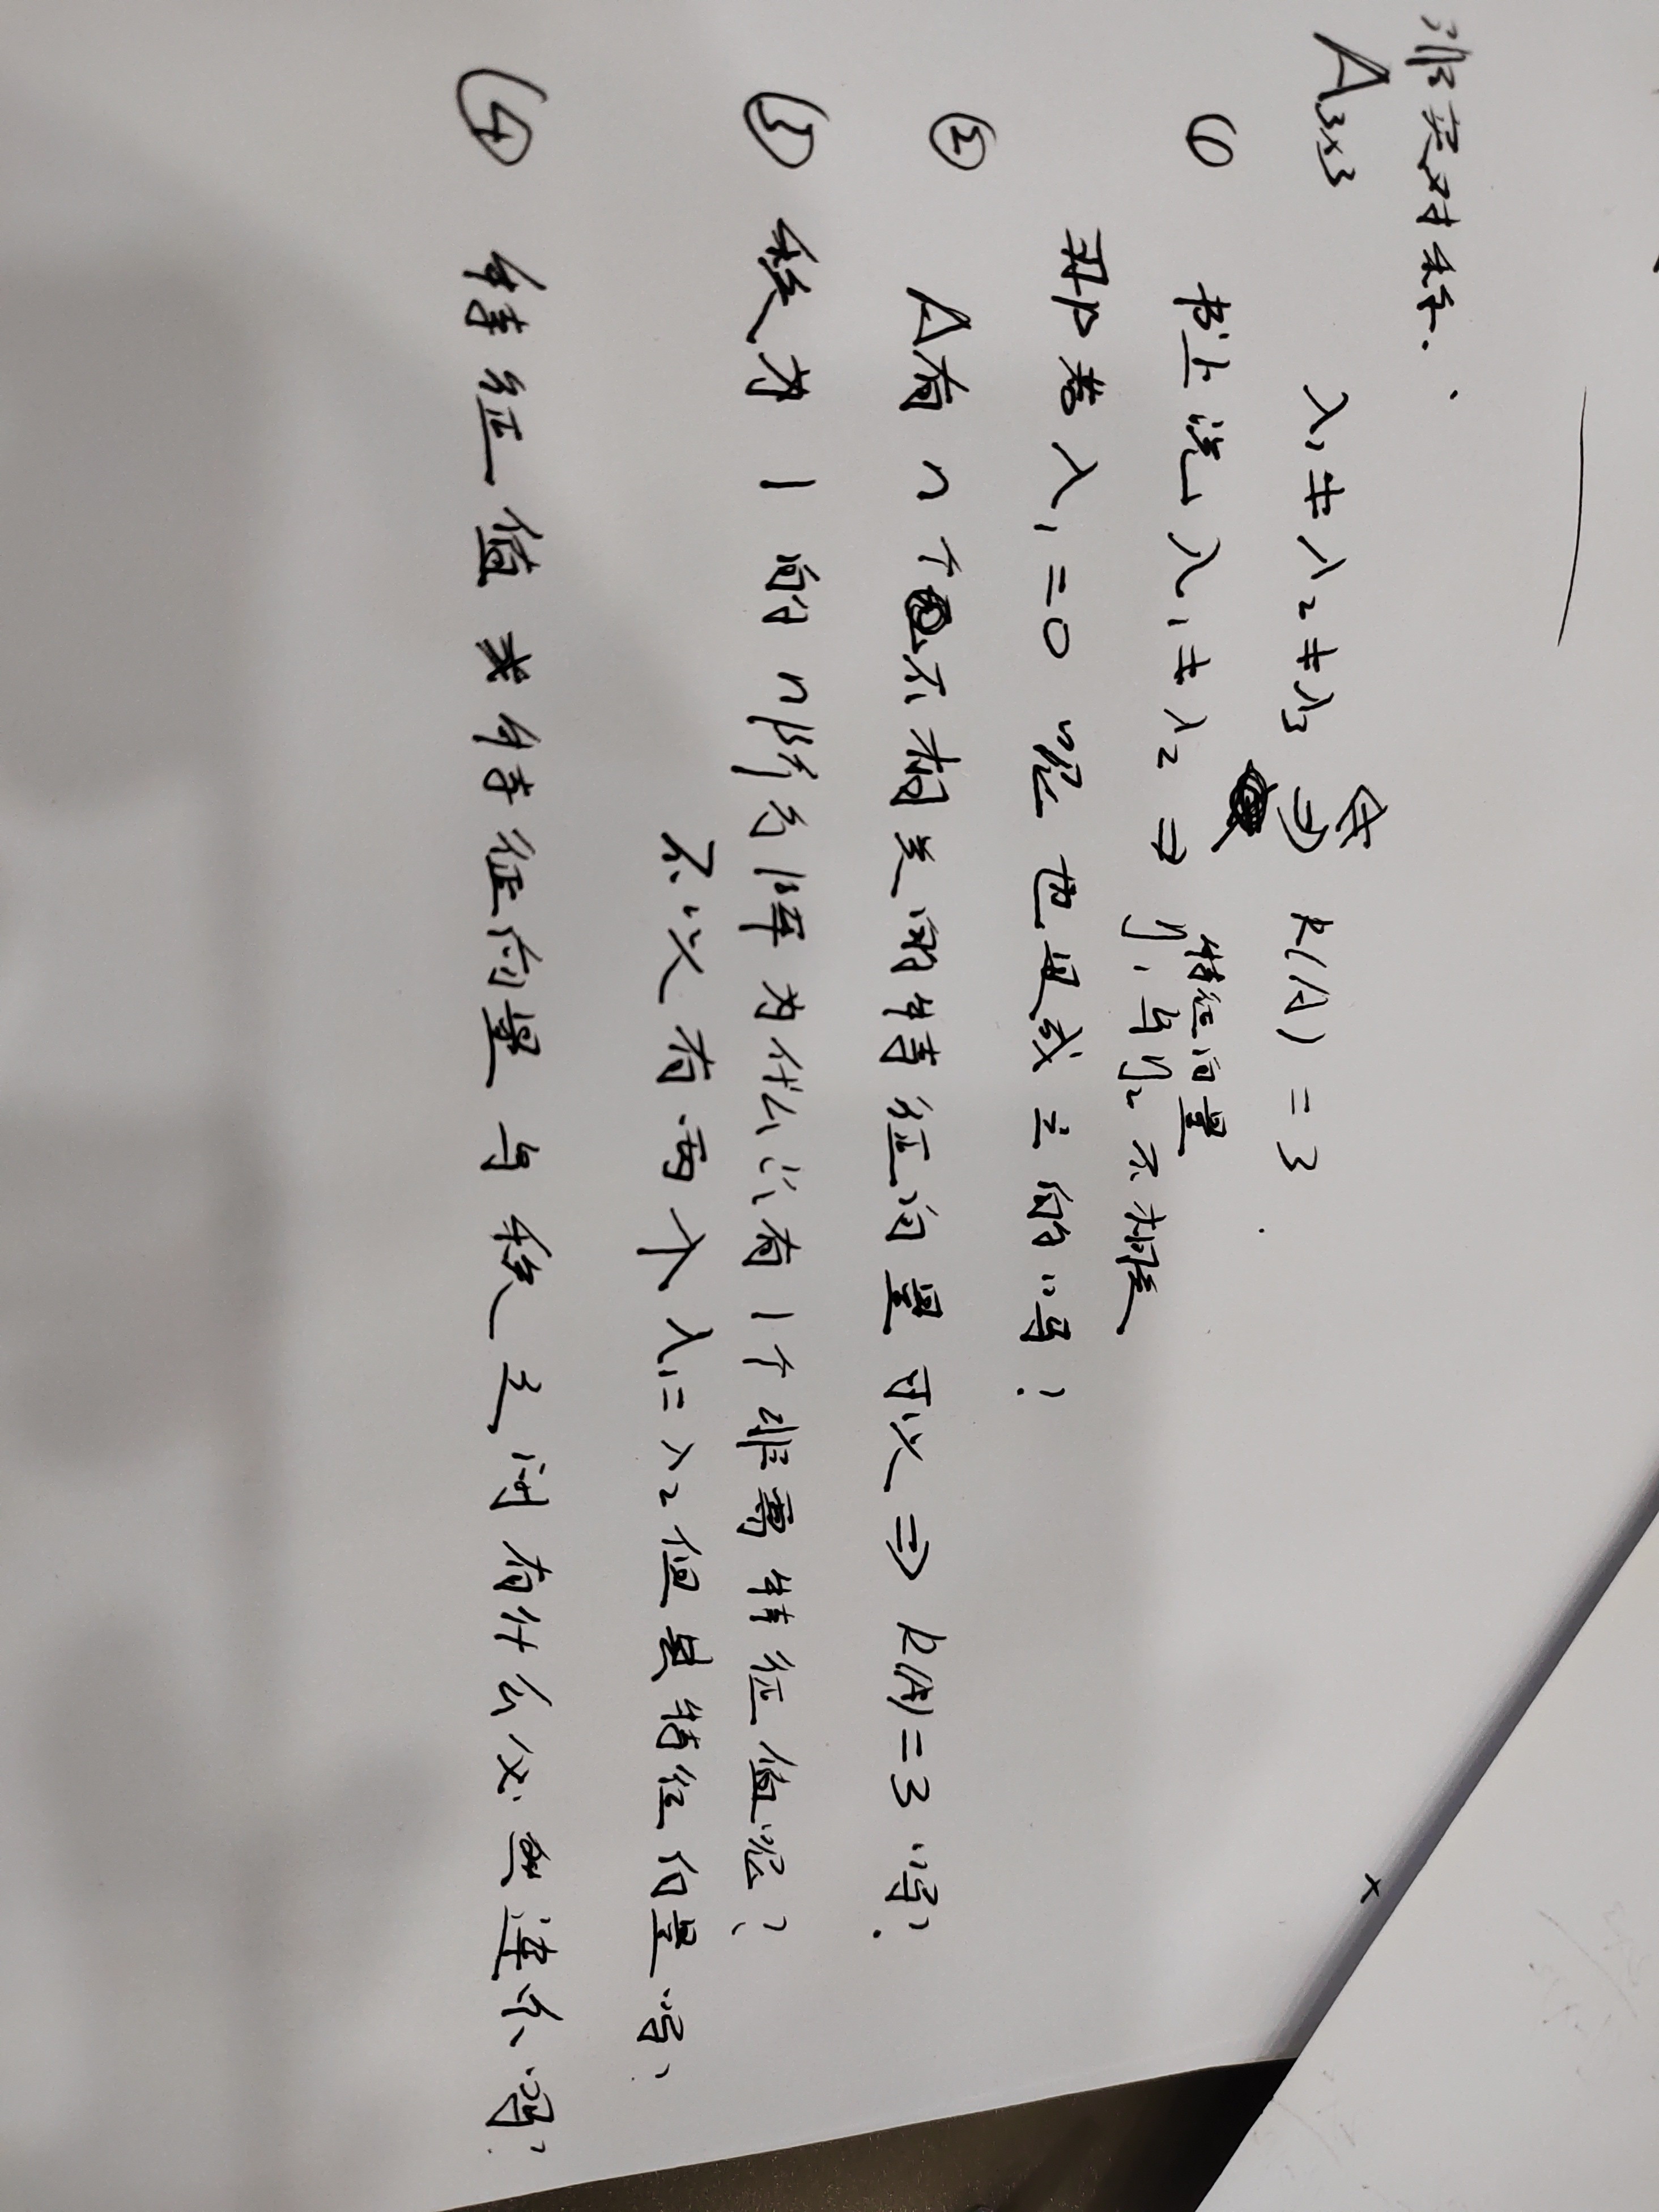 非实对称.
A₃ₓ₃ λ₁≠λ₂≠λ₃ ⇏ R(A)=3
① 书上说 λ₁≠λ₂ ⇒ 特征向量 η₁与η₂不相关
那若λ₁=0呢也是成立的吗?
② A有n个不相关的特征向量可以⇒R(A)=3吗?
③ 秩为1的n阶方阵为什么只有1个非零特征值呢?
不以有两个λ₁=λ₂但是特征向量吗?
④ 特征值或特征向量与秩之间有什么必要连系吗?